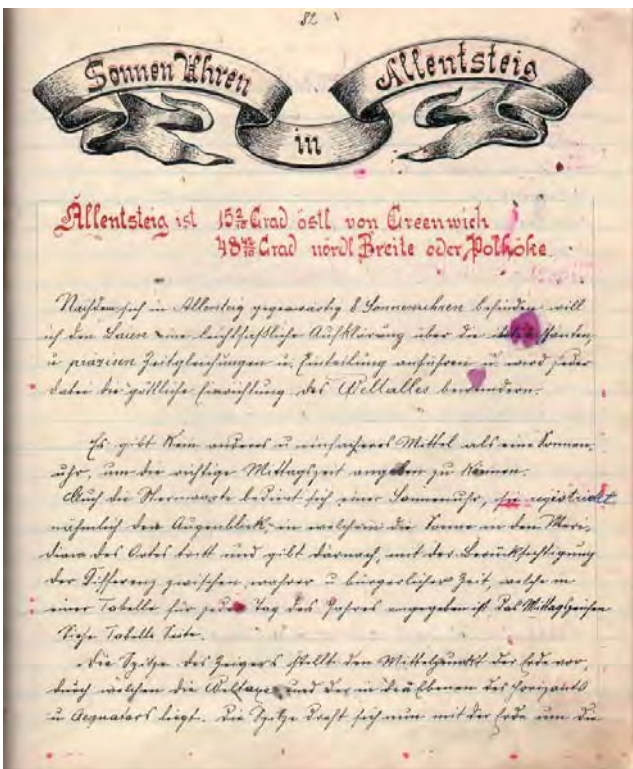 82
Sonnen Uhren
in
Allentsteig
Allentsteig ist 15 3/10 Grad östl. von Greenwich
48 Grad nördl. Breite oder Polhöhe.
Nachdem sich in Allentsteig gegenwärtig 8 Sonnenuhren befinden will
ich den Laien eine leichtfaßliche Aufklärung über die
u präzisen Zeitgleichungen u. Einteilung anführen u. wird jeder
dabei die göttliche Einrichtung des Weltalles bewundern.
Es gibt kein anderes u einfacheres Mittel als eine Sonnen-
uhr, um die richtige Mittagszeit angeben zu können.
Auch die Sternwarte bedient sich einer Sonnenuhr, sie registriert
nähmlich den Augenblick, in welchem die Sonne in den Meri-
dian des Ortes tritt und gibt darnach, mit der Berücksichtigung
der Differenz zwischen wahrer u bürgerlicher Zeit, welche in
einer Tabelle für jeden Tag des Jahres angegeben ist das Mittagszeichen
Siehe Tabelle Seite.
Die Spitze des Zeigers stellt den Mittelpunkt der Erde vor,
durch welchen die Weltaxe und der in den Ebenen des Horizonts
u Aequators liegt. Die Spitze dreht sich nun mit der Erde um die